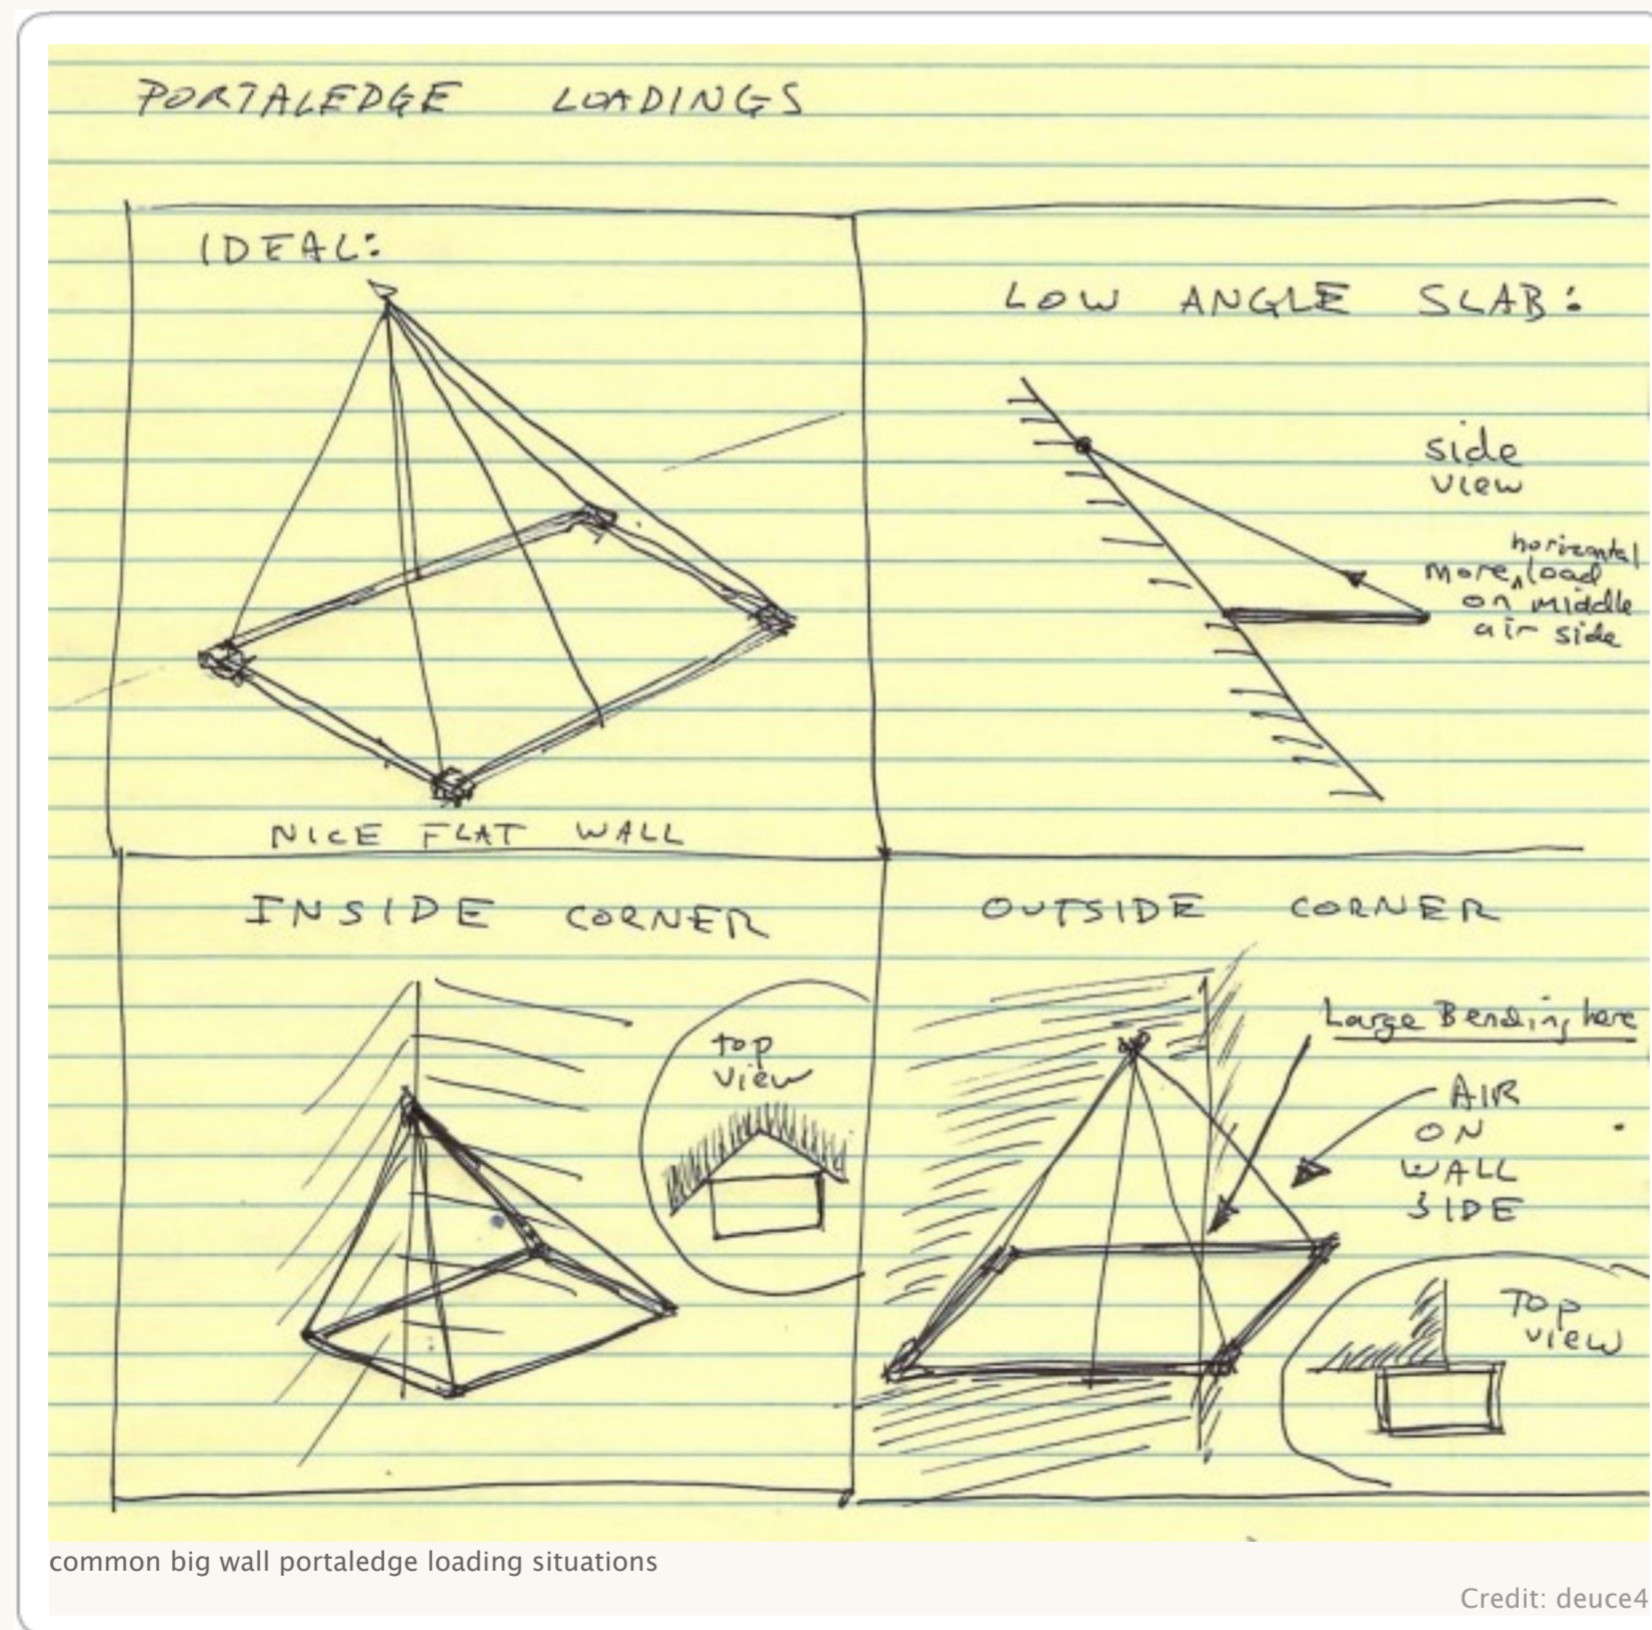 PORTALEDGE LOADINGS
IDEAL:
NICE FLAT WALL
LOW ANGLE SLAB:
side
view
horizontal
more ^ load
on middle
air side
INSIDE CORNER
top
view
OUTSIDE CORNER
Large Bending here
AIR
ON
WALL
SIDE
TOP
view
common big wall portaledge loading situations
Credit: deuce4